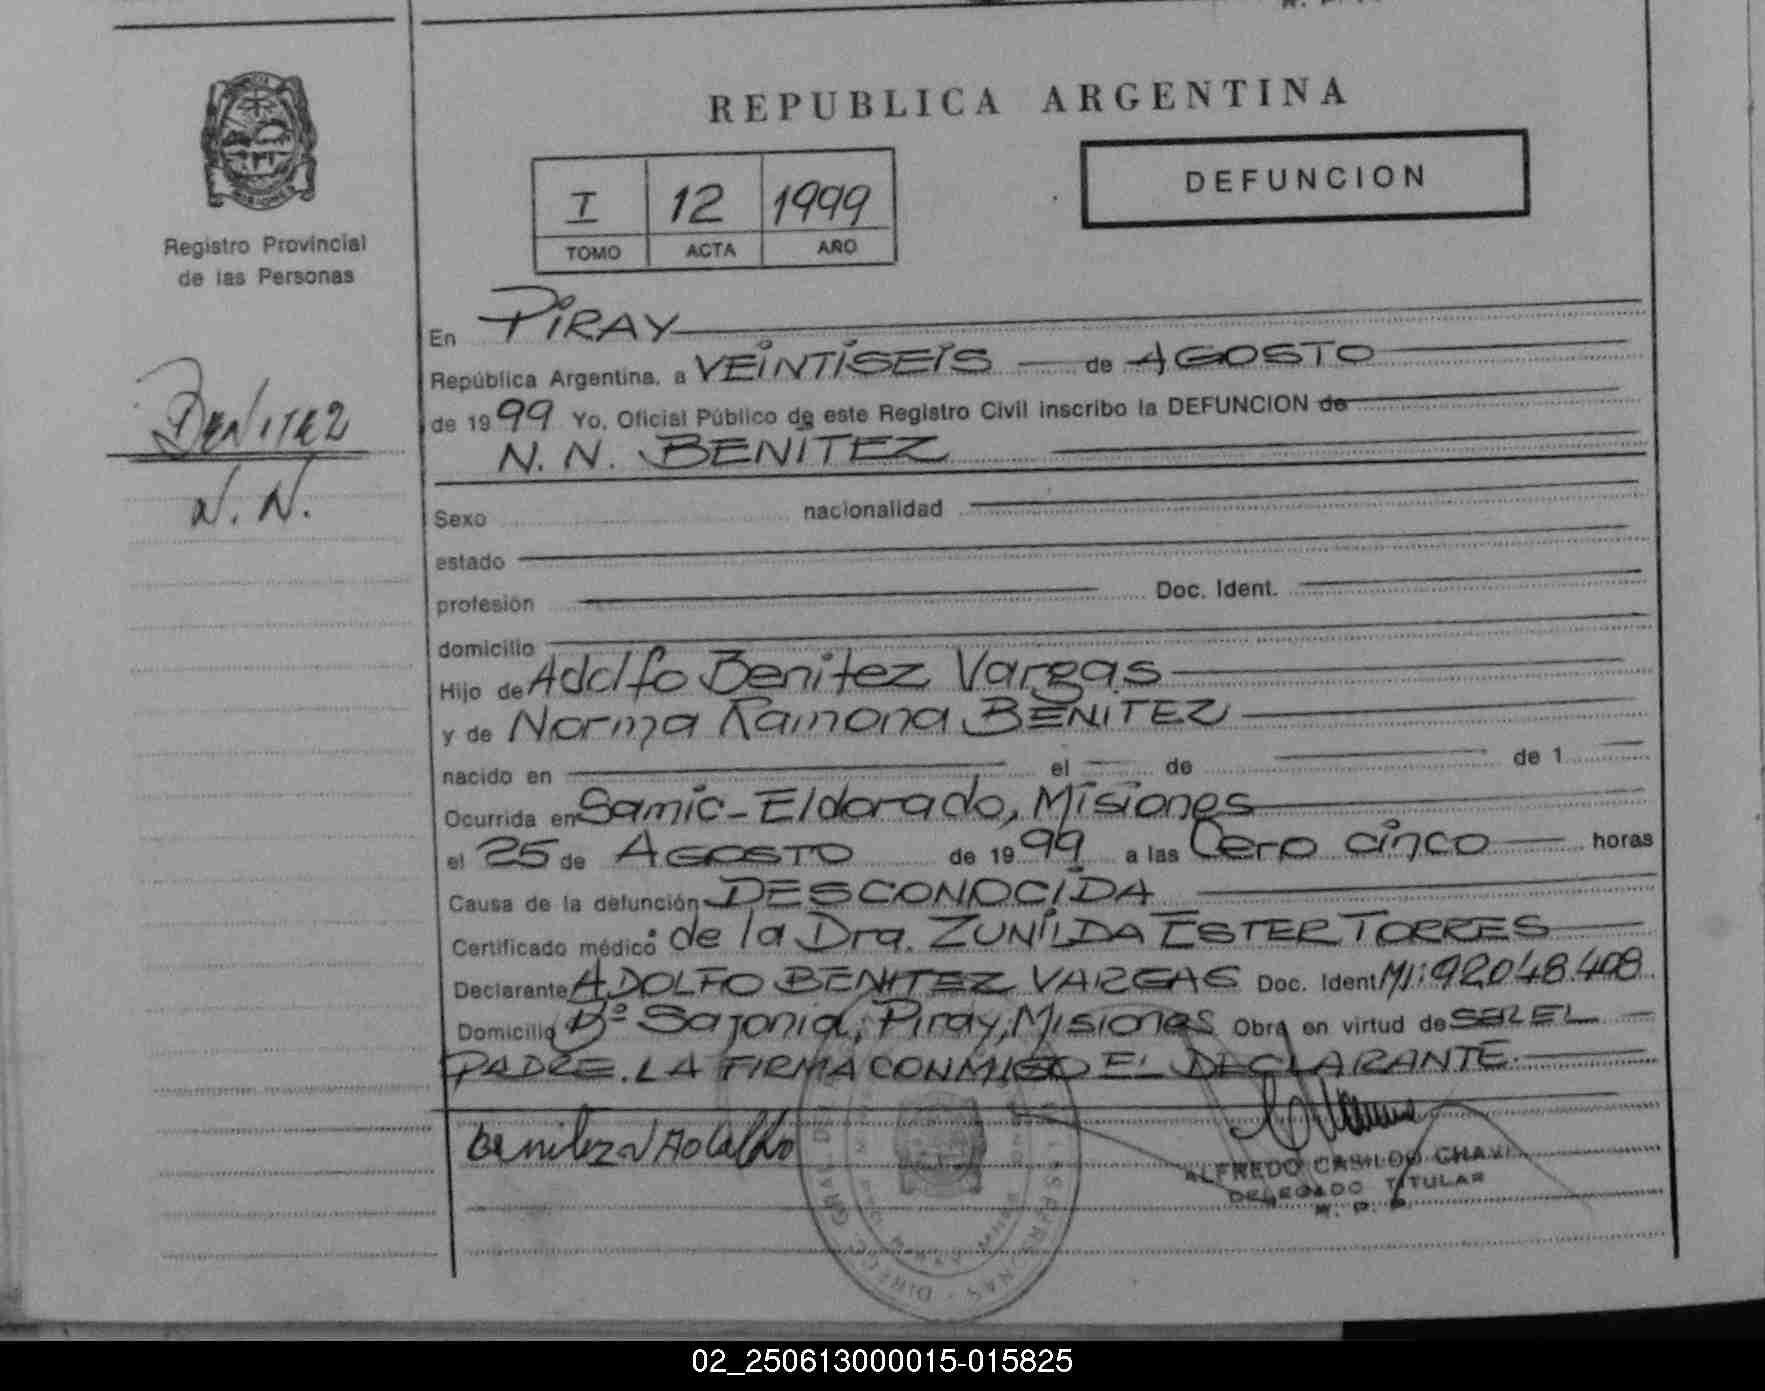 REPUBLICA ARGENTINA
DEFUNCION
I 12 1999
TOMO ACTA AÑO
Registro Provincial
de las Personas
BENITEZ
N. N.
En PIRAY
República Argentina, a VEINTISEIS de AGOSTO
de 1999 Yo, Oficial Público de este Registro Civil inscribo la DEFUNCION de
N. N. BENITEZ
Sexo nacionalidad
estado
profesión Doc. Ident.
domicilio
Hijo de Adolfo Benitez Vargas
y de Norma Ramona BENITEZ
nacido en el de de 1
Ocurrida en Samic-Eldorado, Misiones
el 25 de AGOSTO de 1999 a las Cero cinco horas
Causa de la defunción DESCONOCIDA
Certificado médico de la Dra. ZUNILDA ESTER TORRES
Declarante ADOLFO BENITEZ VARGAS Doc. Ident MI: 92048.408
Domicilio Bº Sajonia, Piray, Misiones Obra en virtud de SER EL
PADRE. LA FIRMA CONMIGO EL DECLARANTE.
Benitez V Adolfo
ALFREDO CASILDO
DELEGADO TITULAR
02_250613000015-015825